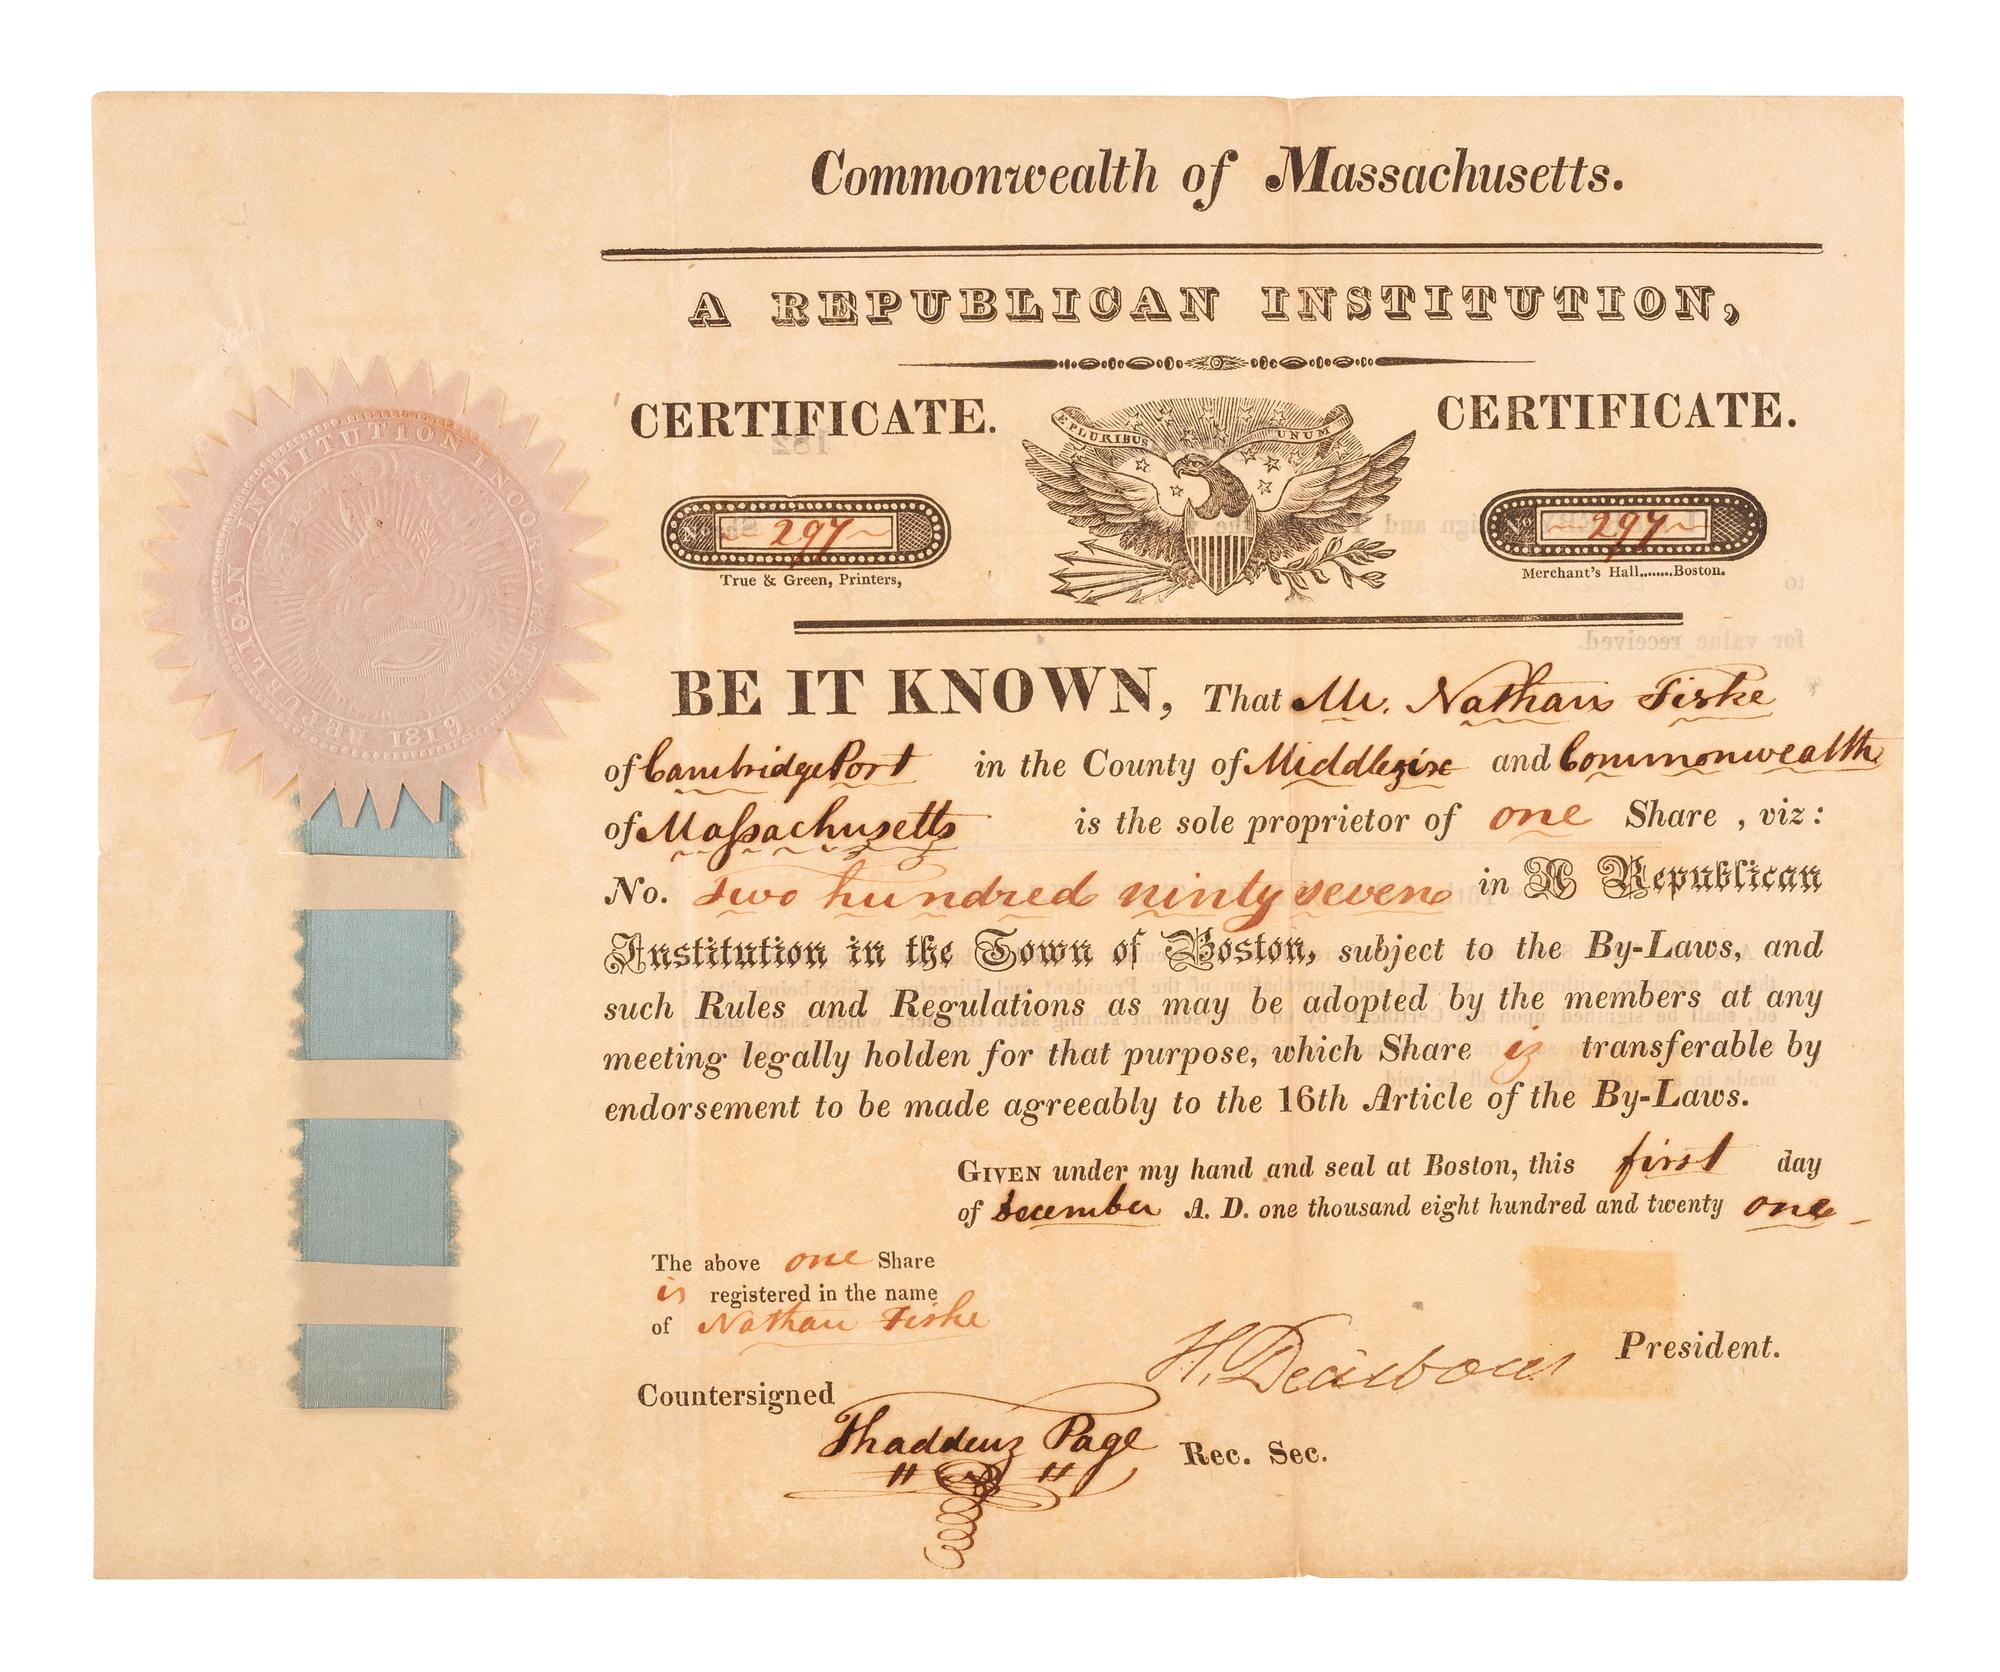 Commonwealth of Massachusetts.
A REPUBLICAN INSTITUTION,
CERTIFICATE.
E PLURIBUS UNUM
CERTIFICATE.
No. 297
No. 297
True & Green, Printers,
Merchant's Hall........Boston.
REPUBLICAN INSTITUTION INCORPORATED 1819
BE IT KNOWN, That Mr. Nathan Fiske
of CambridgePort in the County of Middlesix and Commonwealth
of Massachusetts is the sole proprietor of one Share , viz:
No. Two hundred ninty seven in A Republican
Institution in the Town of Boston, subject to the By-Laws, and
such Rules and Regulations as may be adopted by the members at any
meeting legally holden for that purpose, which Share is transferable by
endorsement to be made agreeably to the 16th Article of the By-Laws.
GIVEN under my hand and seal at Boston, this first day
of December A. D. one thousand eight hundred and twenty one
The above one Share
is registered in the name
of Nathan Fiske
H. Dearborn President.
Countersigned
Thaddeus Page Rec. Sec.